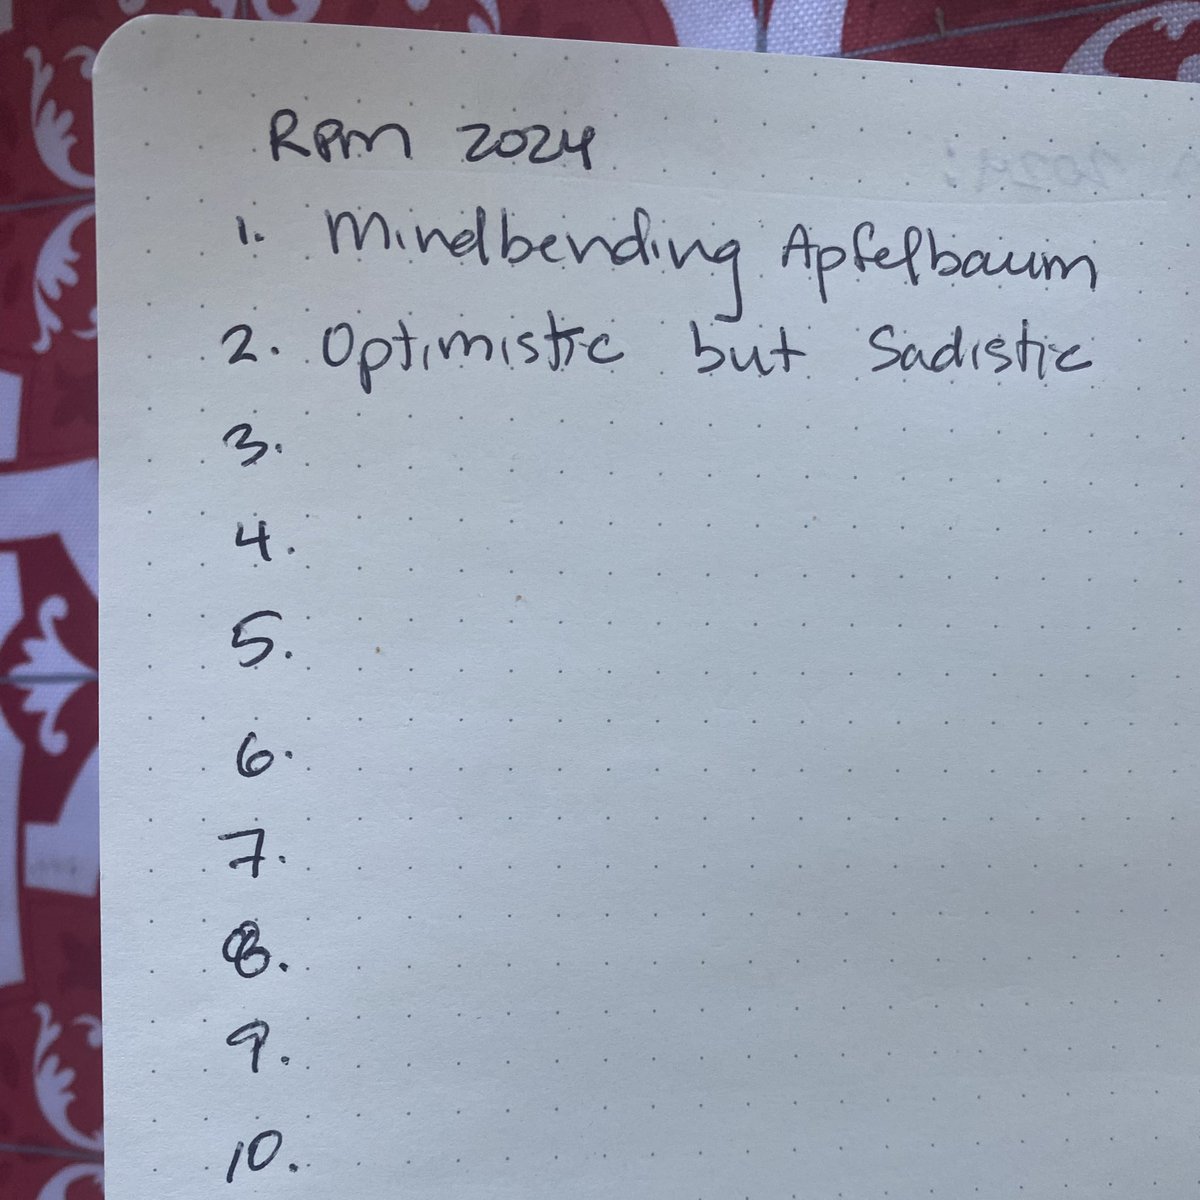 RPM 2024
1. Mindbending Apfelbaum
2. Optimistic but Sadistic
3.
4.
5.
6.
7.
8.
9.
10.